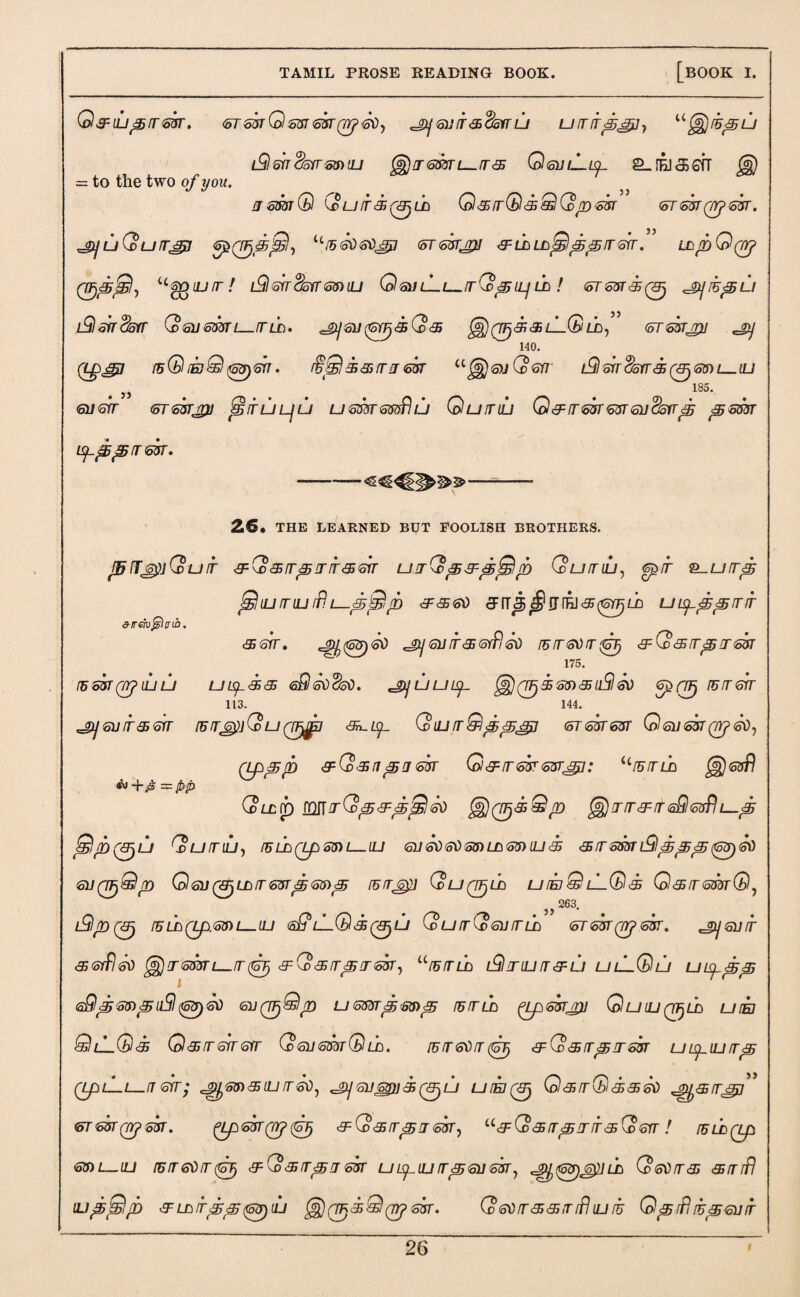 TAMIL PROSE READING BOOK. [BOOK I.
செய்தான். என்னென்றால், அவர்களைப் பார்த்து, “இந்தப்
பிள்ளையை இரண்டாக வெட்டி உங்கள் இ
= to the two of you.
ரண்டு பேர்க்கும் கொடுக்கிறேன்” என்றான்.
அப்போது ஒருத்தி, “நல்லது என்று சம்மதித்தாள்.” மற்றொ
ருத்தி, “ஐயா! பிள்ளையை வெட்டாதேயும்! எனக்கு அந்தப்
பிள்ளை வேண்டாம். அவளுக்கே இருக்கட்டும்,” என்று அ
140.
ழுது நடுங்கினாள். நீதிக்காரன் “இவளே பிள்ளைக்குடைய
185.
வள்” என்று தீர்ப்புப் பண்ணிப் பொய் சொன்னவளைத் தண்
டித்தான்.
26. THE LEARNED BUT FOOLISH BROTHERS.
நாலுபேர் சகோதரர்கள் பரதேசத்திற் போய், ஓர் உபாத்
தியாயரிடத்தில் சகல சாத்திரங்களும் படித்தார்
சாஸ்திரம்.
கள். ஆனால் அவர்களில் நாலாஞ் சகோதரன்
175.
நன்றாய்ப் படிக்கவில்லை. அப்படி இருக்கையில் ஒரு நாள்
113. 144.
அவர்கள் நாலுபேருந் கூடி யோகித்தது என்னவென்றால்,
முத்த சகோதரன் சொன்னது: “நாம் இனி
ல்+த் =ற்ற
மேற் பரதேசத்தில் இருக்கிற இராசாவினிடத்
திற்குப் போய், நம்முடைய வல்லமையைக் காண்பித்ததனால்
வருகிற வெகுமானத்தை நாலு பேரும் பங்கிட்டுக் கொண்டு,
263.
பிறகு நம்முடைய வீட்டுக்குப் போவோம்” என்றான். அவர்
களில் இரண்டாஞ் சகோதரன், “நாம் பிரயாசப் பட்டுப் படித்த
வித்தையினால் வருகிற பணத்தை நாம் மூன்று பெயரும் பங்
கிட்டுக் கொள்ள வேண்டும். நாலாஞ் சகோதரன் படியாத
முட்டாள்; ஆகையால், அவனுக்குப் பங்கு கொடுக்கல் ஆகாது”
என்றான். மூன்றாஞ் சகோதரன், “சகோதரர்களே! நம்மு
டைய நாலாஞ் சகோதரன் படியாதவன், ஆனாலும் லோக காரி
யத்திற் சமர்த்தனாய் இருக்கிறான். லோககாரியந் தெரிந்தவர்
26